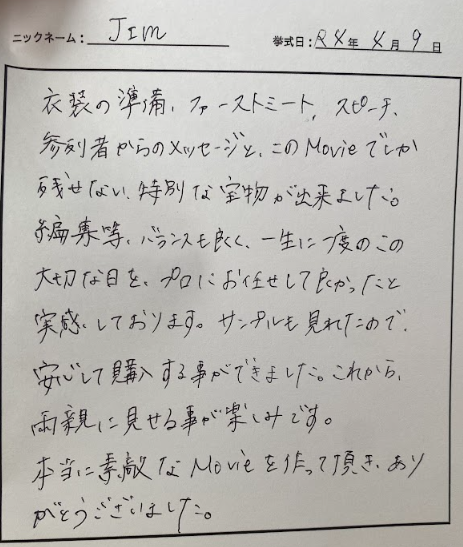 ニックネーム: Jim 挙式日: R4年 4月 9日
衣装の準備、ファーストミート、スピーチ、
参列者からのメッセージと、このMovieでしか
残せない、特別な宝物が出来ました。
編集等、バランスも良く、一生に一度のこの
大切な日を、プロにお任せして良かったと
実感しております。サンプルも見れたので、
安心して購入する事ができました。これから、
両親に見せる事が楽しみです。
本当に素敵なMovieを作って頂き、あり
がとうございました。